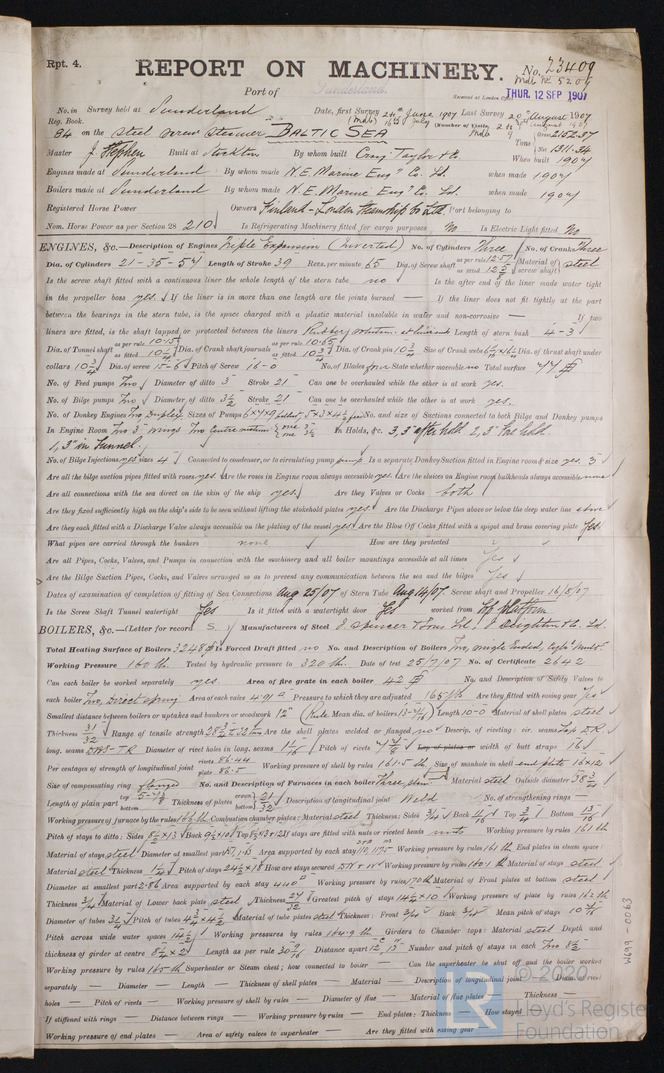 Rpt. 4.
REPORT ON MACHINERY.
No. 23409
Port of Sunderland
Received at London Office THUR. 12 SEP 1907
No. in Survey held at Sunderland Date, first Survey June 1907 Last Survey August 1907
Reg. Book. (Number of Visits
84 on the steel screw steamer BALTIC SEA Tons Gross 2152.37 Net 1311.34
Master J. Stephen Built at Stockton By whom built Craig Taylor & Co. When built 1907
Engines made at Sunderland By whom made N.E. Marine Engg Co. Ld. when made 1907
Boilers made at Sunderland By whom made N.E. Marine Engg Co. Ld. when made 1907
Registered Horse Power Owners Finland-London Steamship Co Ltd. Port belonging to
Nom. Horse Power as per Section 28 210 Is Refrigerating Machinery fitted for cargo purposes No Is Electric Light fitted No
ENGINES, &c.—Description of Engines Triple Expansion (Inverted) No. of Cylinders Three No. of Cranks Three
Dia. of Cylinders 21-35-57 Length of Stroke 39 Revs. per minute 65 Dia. of Screw shaft as per rule 12.57 as fitted Material of screw shaft steel
Is the screw shaft fitted with a continuous liner the whole length of the stern tube no Is the after end of the liner made water tight
in the propeller boss yes If the liner is in more than one length are the joints burned — If the liner does not fit tightly at the part
between the bearings in the stern tube, is the space charged with a plastic material insoluble in water and non-corrosive — If two
liners are fitted, is the shaft lapped or protected between the liners Length of stern bush 4-3
Dia. of Tunnel shaft as per rule 10.15 as fitted 10 3/4 Dia. of Crank shaft journals as per rule 10.65 as fitted 10 3/4 Dia. of Crank pin 10 3/4 Size of Crank webs Dia. of thrust shaft under
collars 10 3/4 Dia. of screw 15-6 Pitch of Screw 16-0 No. of Blades four State whether moveable no Total surface 74
No. of Feed pumps Two Diameter of ditto 3 Stroke 21 Can one be overhauled while the other is at work yes.
No. of Bilge pumps Two Diameter of ditto 3 1/2 Stroke 21 Can one be overhauled while the other is at work yes.
No. of Donkey Engines Two Duplex Sizes of Pumps 6x7x9 No. and size of Suctions connected to both Bilge and Donkey pumps
In Engine Room Two 3" wings Two centre In Holds, &c. 3, 3" after hold 2, 3" fore hold
1, 3" in Tunnel.
No. of Bilge Injections yes sizes 4 Connected to condenser, or to circulating pump pump Is a separate Donkey Suction fitted in Engine room & size yes. 3
Are all the bilge suction pipes fitted with roses yes. Are the roses in Engine room always accessible yes. Are the sluices on Engine room bulkheads always accessible none
Are all connections with the sea direct on the skin of the ship yes Are they Valves or Cocks both
Are they fixed sufficiently high on the ship's side to be seen without lifting the stokehold plates yes Are the Discharge Pipes above or below the deep water line above
Are they each fitted with a Discharge Valve always accessible on the plating of the vessel yes Are the Blow Off Cocks fitted with a spigot and brass covering plate Yes
What pipes are carried through the bunkers none How are they protected
Are all Pipes, Cocks, Valves, and Pumps in connection with the machinery and all boiler mountings accessible at all times Yes
Are the Bilge Suction Pipes, Cocks, and Valves arranged so as to prevent any communication between the sea and the bilges Yes
Dates of examination of completion of fitting of Sea Connections Aug 25/07 of Stern Tube Aug 14/07 Screw shaft and Propeller 16/8/07
Is the Screw Shaft Tunnel watertight Yes Is it fitted with a watertight door Yes worked from top platform
BOILERS, &c.—(Letter for record S) Manufacturers of Steel J. Spencer & Sons Ld.
Total Heating Surface of Boilers 3248 Is Forced Draft fitted no No. and Description of Boilers Two, single Ended,
Working Pressure 160 lb. Tested by hydraulic pressure to 320 lb. Date of test 25/7/07 No. of Certificate 2642
Can each boiler be worked separately yes. Area of fire grate in each boiler 42 No. and Description of Safety Valves to
each boiler Two, Direct spring Area of each valve 4.91 Pressure to which they are adjusted 165 lb Are they fitted with easing gear Yes
Smallest distance between boilers or uptakes and bunkers or woodwork 12" Mean dia. of boilers Length 10-0 Material of shell plates steel
Thickness 31/32 Range of tensile strength Are the shell plates welded or flanged no Descrip. of riveting: cir. seams Lap DR
long. seams DBS-TR Diameter of rivet holes in long. seams Pitch of rivets Lap of plates or width of butt straps 16
Per centages of strength of longitudinal joint rivets 86.44 plate 86.5 Working pressure of shell by rules 161.5 lb Size of manhole in shell end plate 16x12
Size of compensating ring flanged No. and Description of Furnaces in each boiler Three, plain Material steel Outside diameter 38 3/4
Length of plain part top bottom Thickness of plates crown bottom 21/32 Description of longitudinal joint Weld No. of strengthening rings —
Working pressure of furnace by the rules 166 lb Combustion chamber plates: Material steel Thickness: Sides Back Top Bottom
Pitch of stays to ditto: Sides 8 1/2 x 13 Back Top If stays are fitted with nuts or riveted heads nuts Working pressure by rules 161 lb
Material of stays steel Diameter at smallest part Area supported by each stay Working pressure by rules 161 lb End plates in steam space:
Material steel Thickness Pitch of stays How are stays secured DN & W Working pressure by rules Material of stays steel
Diameter at smallest part 2.86 Area supported by each stay 440 Working pressure by rules 170 lb Material of Front plates at bottom steel
Thickness 3/4 Material of Lower back plate steel Thickness 27/32 Greatest pitch of stays Working pressure of plate by rules 162 lb
Diameter of tubes 3 1/4 Pitch of tubes Material of tube plates steel Thickness: Front 3/4 Back 3/4 Mean pitch of stays
Pitch across wide water spaces Working pressures by rules 164.9 lb Girders to Chamber tops: Material steel Depth and
thickness of girder at centre Length as per rule Distance apart Number and pitch of stays in each Two 8 1/2
Working pressure by rules 165 lb Superheater or Steam chest; how connected to boiler — Can the superheater be shut off and the boiler worked
separately — Diameter — Length — Thickness of shell plates — Material — Description of longitudinal joint — Diam. of rivet
holes — Pitch of rivets — Working pressure of shell by rules — Diameter of flue — Material of flue plates — Thickness —
If stiffened with rings — Distance between rings — Working pressure by rules — End plates: Thickness — How stayed
Working pressure of end plates — Area of safety valves to superheater — Are they fitted with easing gear —
W699-0063
© 2020
Lloyd's Register
Foundation